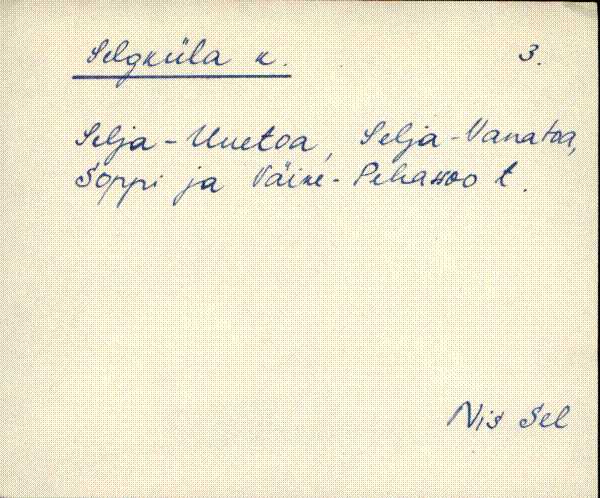 Selgküla k. 3.
Selja-Uuetoa, Selja-Vanatoa,
Soppi ja Väike-Pehassoo t.
Nis Sel